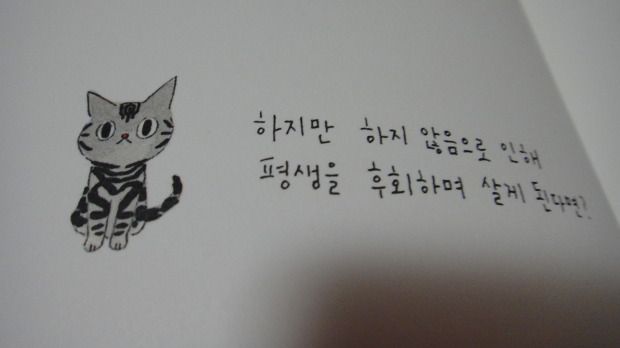 하지만 하지 않음으로 인해
평생을 후회하며 살게 된다면?